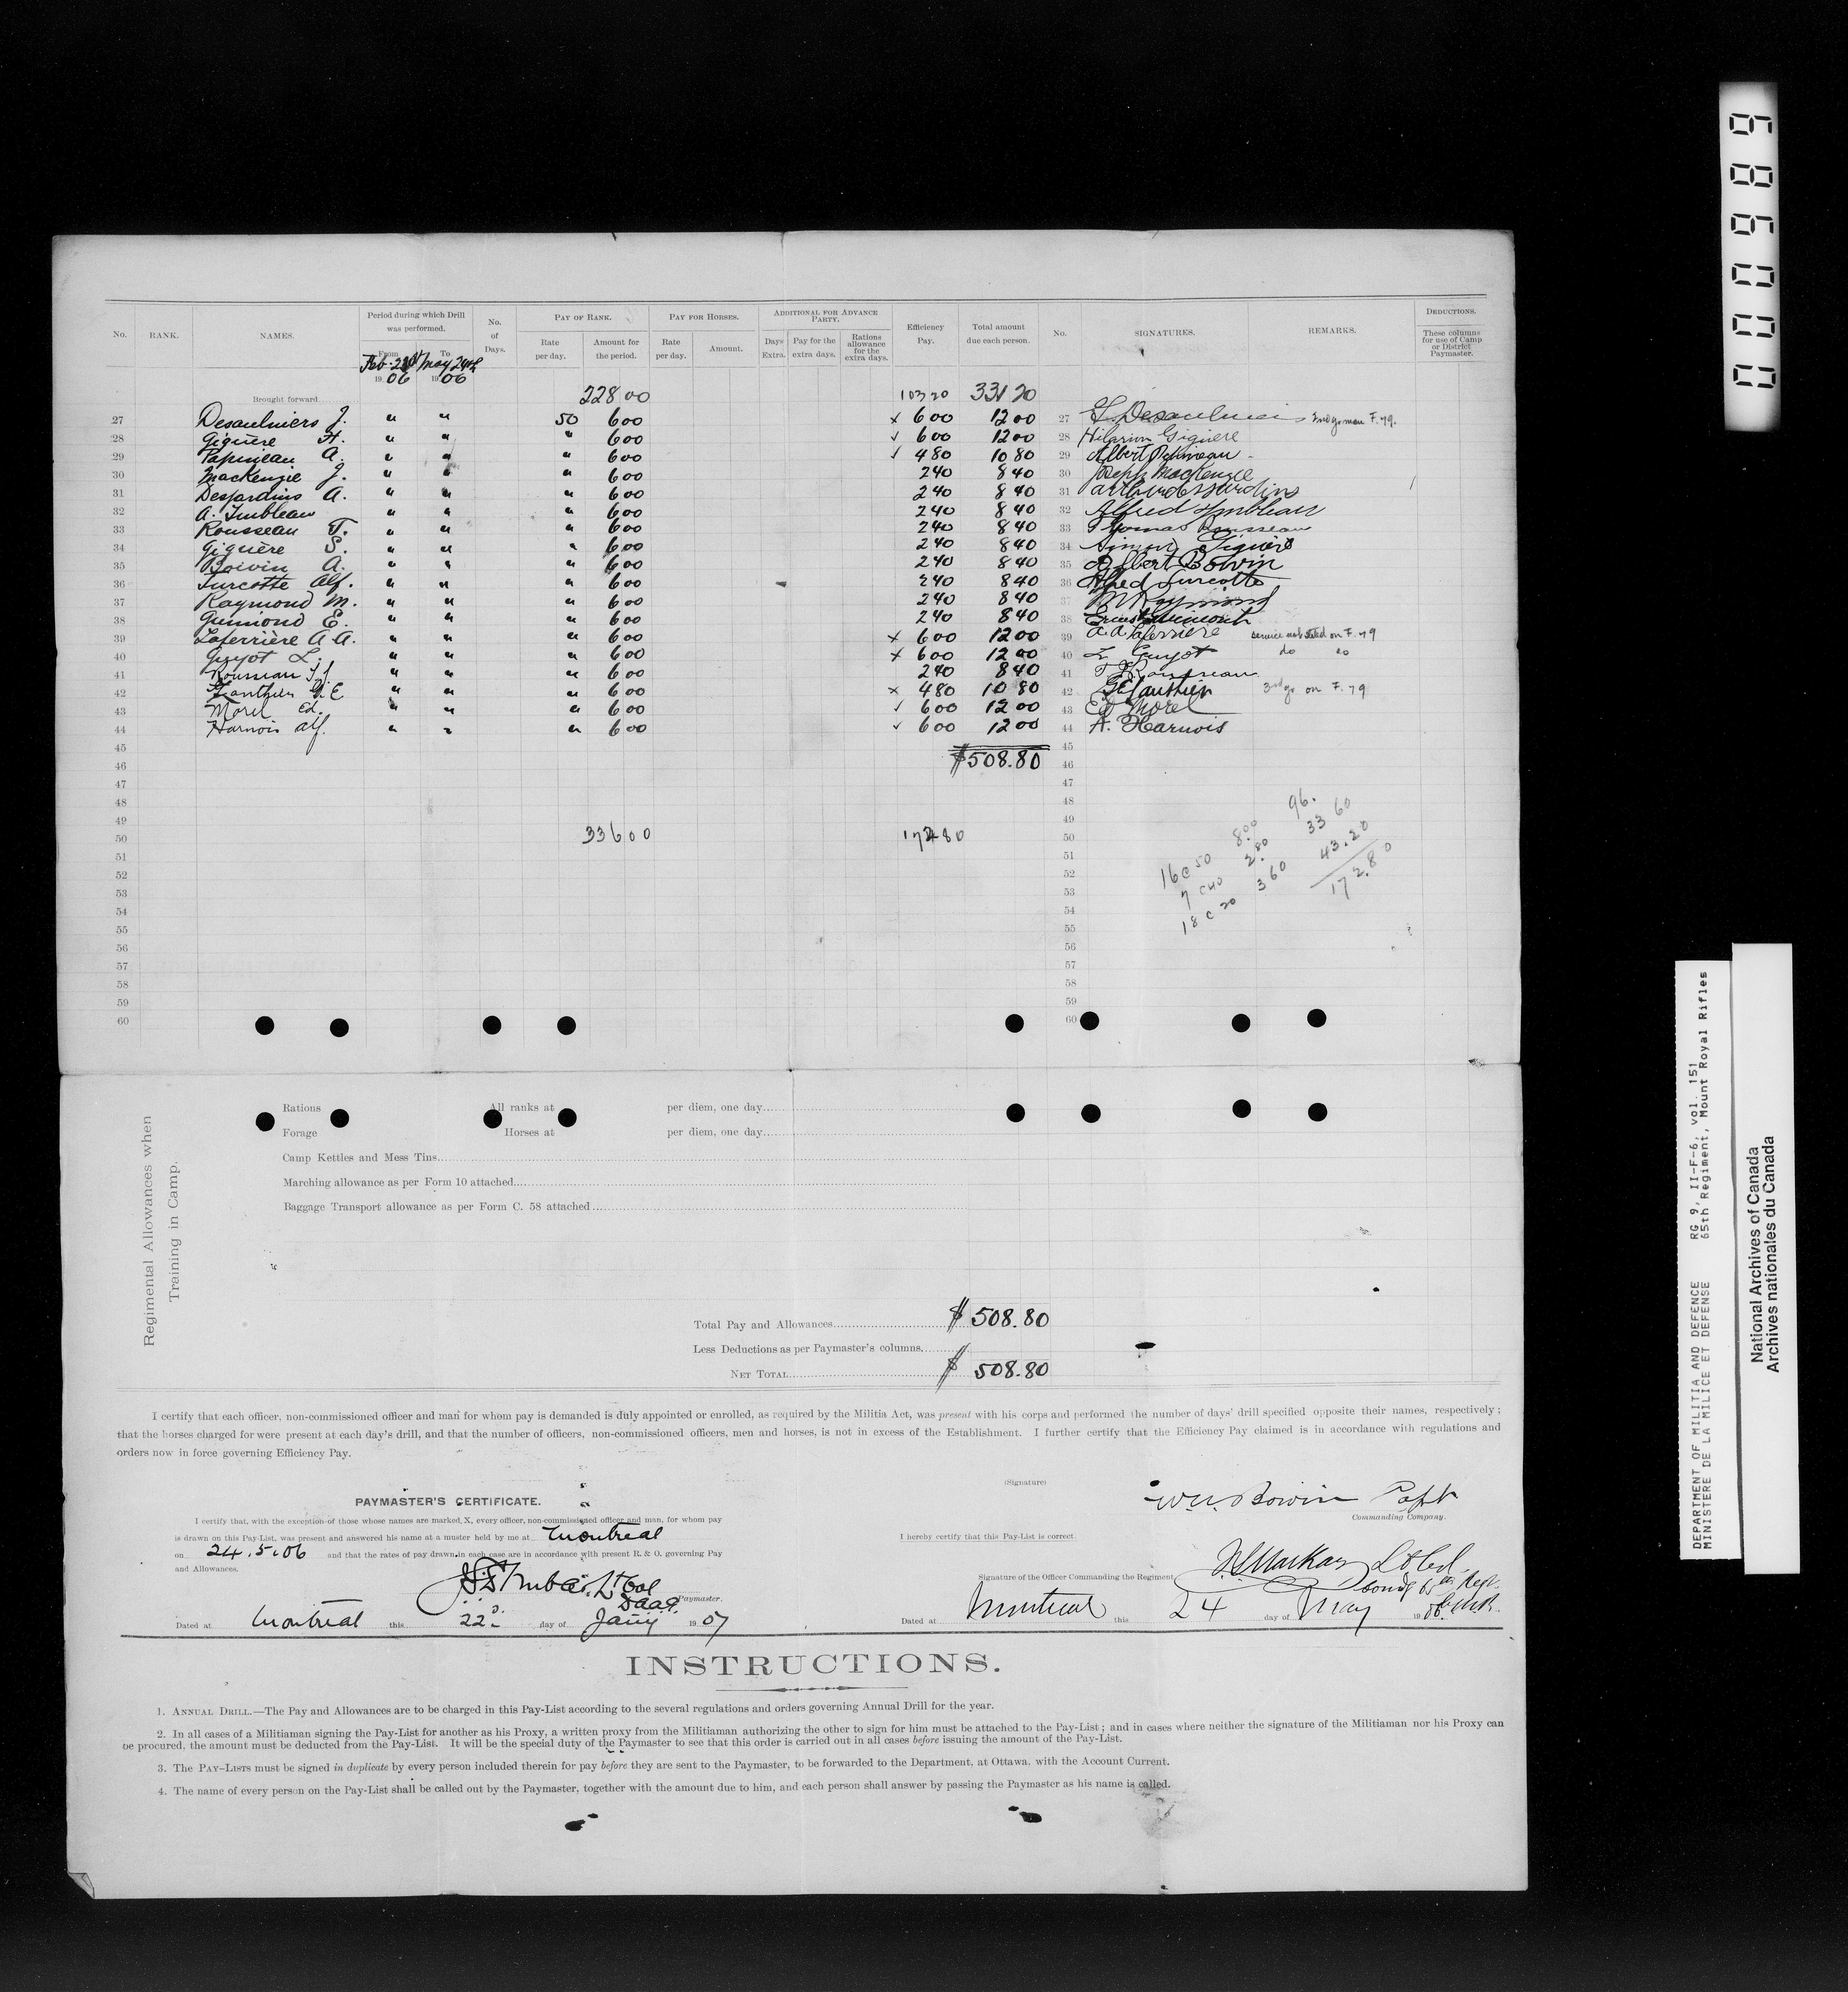 No. RANK. NAMES. Period during which Drill was performed. No. of Days. PAY OF RANK. PAY FOR HORSES. ADDITIONAL FOR ADVANCE PARTY. Efficiency Pay. Total amount due each person. No. SIGNATURES. REMARKS. DEDUCTIONS.
From To Rate per day. Amount for the period. Rate per day. Amount. Days Extra. Pay for the extra days. Rations allowance for the extra days. These columns for use of Camp or District Paymaster.
Feb. May 24th
1906 1906
Brought forward 228 00 103 20 331 20
27 Desaulniers J. " " 50 6 00 x 6 00 12 00 27 Desaulniers F. 79.
28 Giguère H. " " " 6 00 ✓ 6 00 12 00 28 Hilarion Giguère
29 Papineau A. " " " 6 00 ✓ 4 80 10 80 29 Albert Papineau
30 MacKenzie J. " " " 6 00 2 40 8 40 30 Joseph MacKenzie
31 Desjardins A. " " " 6 00 2 40 8 40 31 Arthur desjardins
32 A. Imbleau " " " 6 00 2 40 8 40 32 Alfred Imbleau
33 Rousseau T. " " " 6 00 2 40 8 40 33 Thomas Rousseau
34 Giguère S. " " " 6 00 2 40 8 40 34 Simon Giguère
35 Boivin A. " " " 6 00 2 40 8 40 35 Albert Boivin
36 Turcotte Alf. " " " 6 00 2 40 8 40 36 Alfred Turcotte
37 Raymond M. " " " 6 00 2 40 8 40 37 M Raymond
38 Guimond E. " " " 6 00 2 40 8 40 38 Ernest Guimond
39 Laferrière A.A. " " " 6 00 x 6 00 12 00 39 A.A Laferrière service not stated on F. 79
40 Guyot L. " " " 6 00 x 6 00 12 00 40 L Guyot do do
41 Rousseau T.J. " " " 6 00 2 40 8 40 41 T J Rousseau
42 Gauthier G E " " " 6 00 x 4 80 10 80 42 G E Gauthier 3rd yr on F. 79
43 Morel Ed. " " " 6 00 ✓ 6 00 12 00 43 Ed Morel
44 Harnois Alf. " " " 6 00 ✓ 6 00 12 00 44 A. Harnois
45 45
46 $508.80 46
47 47
48 48
49 49
50 336 00 172 80 50
51 51
52 52
53 53
54 54
55 55
56 56
57 57
58 58
59 59
60 60
16 c 50 8.00 96.
7 c 40 2.80 33 60
18 c 20 3 60 43.20
172.80
Regimental Allowances when
Training in Camp.
Rations All ranks at per diem, one day
Forage Horses at per diem, one day
Camp Kettles and Mess Tins
Marching allowance as per Form 10 attached
Baggage Transport allowance as per Form C. 58 attached
Total Pay and Allowances $ 508.80
Less Deductions as per Paymaster's columns
NET TOTAL $ 508.80
I certify that each officer, non-commissioned officer and man for whom pay is demanded is duly appointed or enrolled, as required by the Militia Act, was present with his corps and performed the number of days' drill specified opposite their names, respectively;
that the horses charged for were present at each day's drill, and that the number of officers, non-commissioned officers, men and horses, is not in excess of the Establishment. I further certify that the Efficiency Pay claimed is in accordance with regulations and
orders now in force governing Efficiency Pay.
PAYMASTER'S CERTIFICATE.
I certify that, with the exception of those whose names are marked X, every officer, non-commissioned officer and man, for whom pay
is drawn on this Pay-List, was present and answered his name at a muster held by me at Montreal
on 24.5.06 and that the rates of pay drawn in each case are in accordance with present R. & O. governing Pay
and Allowances.
Lt Col
Paymaster.
Dated at Montreal this 22d day of Jany 1907
(Signature) Boivin Capt
Commanding Company.
I hereby certify that this Pay-List is correct.
Signature of the Officer Commanding the Regiment MacKay Lt Col.
Comdg 65th Regt.
Dated at Montreal this 24 day of May 1906
INSTRUCTIONS.
1. ANNUAL DRILL.—The Pay and Allowances are to be charged in this Pay-List according to the several regulations and orders governing Annual Drill for the year.
2. In all cases of a Militiaman signing the Pay-List for another as his Proxy, a written proxy from the Militiaman authorizing the other to sign for him must be attached to the Pay-List; and in cases where neither the signature of the Militiaman nor his Proxy can
be procured, the amount must be deducted from the Pay-List. It will be the special duty of the Paymaster to see that this order is carried out in all cases before issuing the amount of the Pay-List.
3. The PAY-LISTS must be signed in duplicate by every person included therein for pay before they are sent to the Paymaster, to be forwarded to the Department, at Ottawa, with the Account Current.
4. The name of every person on the Pay-List shall be called out by the Paymaster, together with the amount due to him, and each person shall answer by passing the Paymaster as his name is called.
DEPARTMENT OF MILITIA AND DEFENCE RG 9, II-F-6, vol. 151
MINISTERE DE LA MILICE ET DEFENSE 65th Regiment, Mount Royal Rifles
National Archives of Canada
Archives nationales du Canada